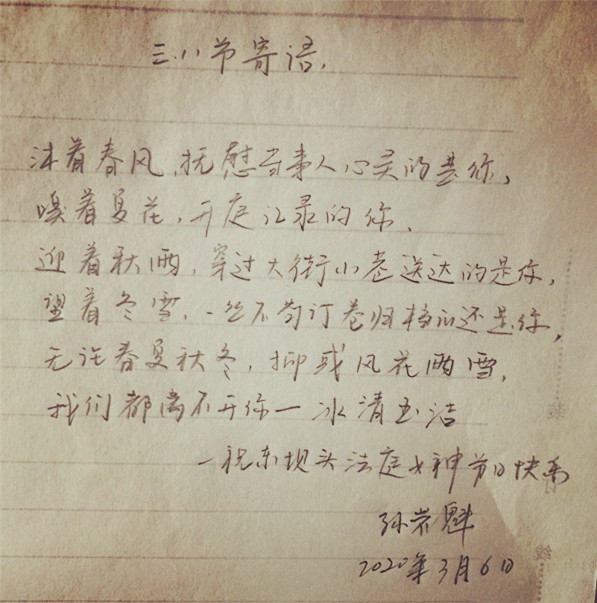 三.八节寄语.
沐着春风,抚慰当事人心灵的是你,
嗅着夏花,开庭记录的你、
迎着秋雨,穿过大街小巷送达的是你,
望着冬雪,一丝不苟订卷归档的还是你,
无论春夏秋冬,抑或风花雨雪,
我们都离不开你—冰清玉洁
—祝东坝头法庭女神节日快乐
孙岩魁
2020年3月6日
线